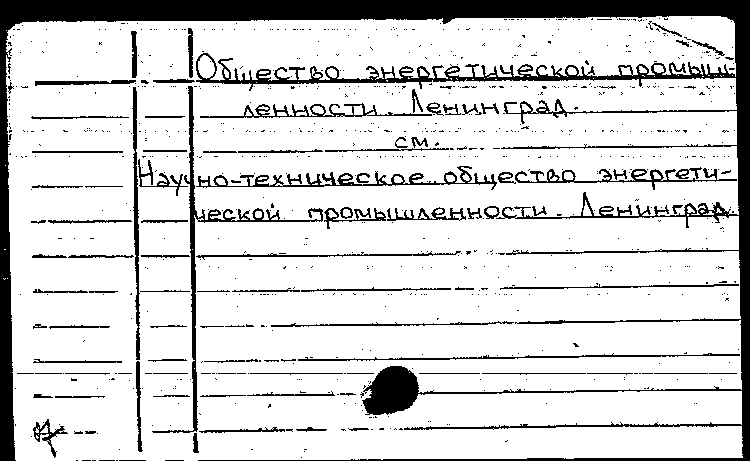 Общество энергетической промыш-
ленности. Ленинград.
см.
Научно-техническое общество энергети-
ческой промышленности. Ленинград.